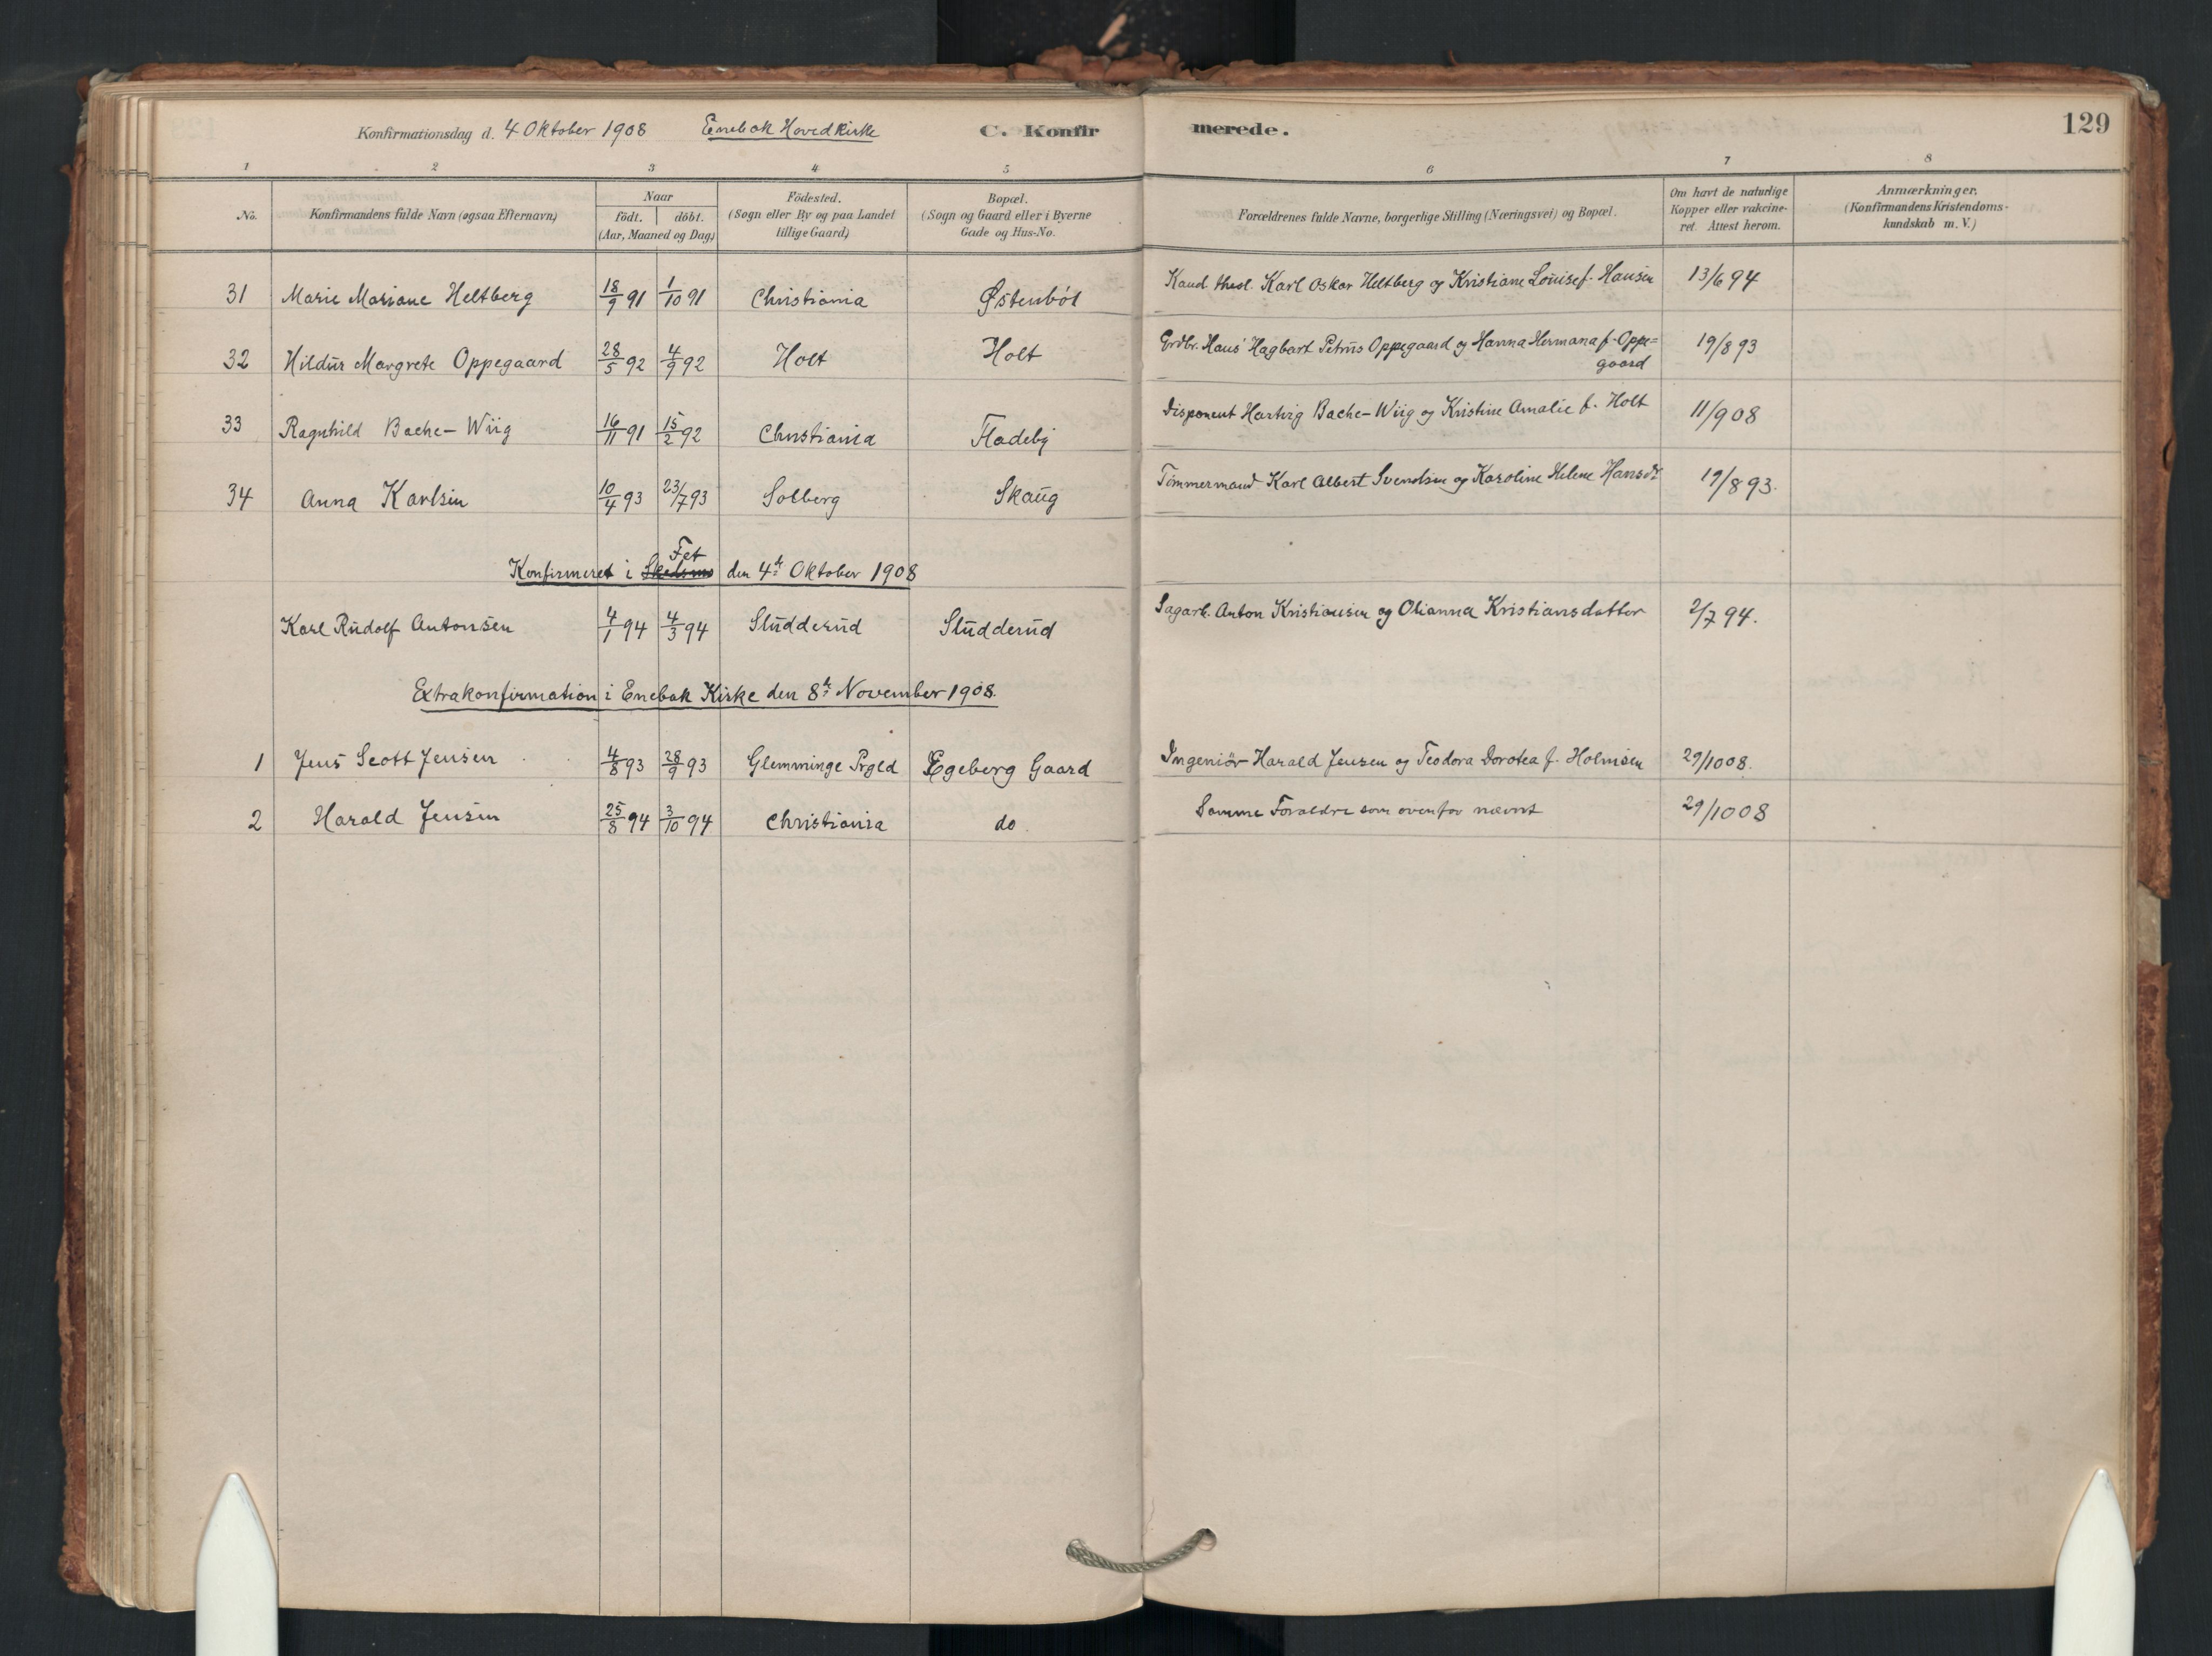 Konfirmationsdag d. 4 Oktober 1908 Enebak Hovedkirke C. Konfirmerede. 129
1 2 3 4 5 6 7 8
No. Konfirmandens fulde Navn (ogsaa Efternavn) Naar födt. döbt. (Aar, Maaned og Dag) Födested. (Sogn eller By og paa Landet tillige Gaard) Bopæl. (Sogn og Gaard eller i Byerne Gade og Hus-No. Forældrenes fulde Navne, borgerlige Stilling (Næringsvei) og Bopæl. Om havt de naturlige Kopper eller vakcineret. Attest herom. Anmærkninger. (Konfirmandens Kristendomskundskab m. V.)
31 Marie Mariane Heltberg 18/9 91 1/10 91 Christiania Østenböl Kand. theol. Karl Oskar Heltberg og Kristiane Louise f. Hansen 13/6 94
32 Hildur Margrete Oppegaard 28/5 92 4/9 92 Holt Holt Grdbr. Hans Hagbart Petrus Oppegaard og Hanna Hermana f. Oppe=
gaard 19/8 93
33 Ragnhild Bache-Wiig 16/11 91 15/2 92 Christiania Fladeby Disponent Hartvig Bache-Wiig og Kristine Amalie f. Holt 11/9 08
34 Anna Karlsen 10/4 93 23/7 93 Solberg Skaug Tömmermand Karl Albert Svendsen og Karoline Helene Hansdr. 19/8 93.
Fet
Konfirmeret i Skedsmo den 4de Oktober 1908
Karl Rudolf Antonsen 4/1 94 4/3 94 Sludderud Sludderud Sagarb. Anton Kristiansen og Olianna Kristiansdatter 2/7 94.
Extrakonfirmation i Enebak Kirke den 8de November 1908.
1 Jens Scott Jensen 4/8 93 28/9 93 Glemminge Prgld Egeberg Gaard Ingeniör Harald Jensen og Teodora Dorotea f. Holmsen 29/10 08.
2 Harald Jensen 25/8 94 3/10 94 Christiania do Samme Forældre som ovenfor nævnt 29/10 08